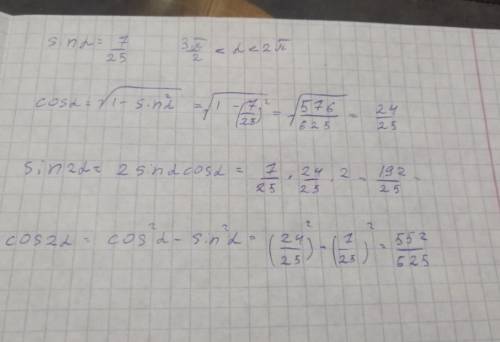 sinα = 7/25    3π/2 < α < 2π
cosα = √(1 - sin²α) = √(1 - (7/25)²) = √(576/625) = 24/25
sin2α = 2 sinα cosα = 7/25 · 24/25 · 2 = 192/25 -
cos2α = cos²α - sin²α = (24/25)² - (7/25)² = 552/625